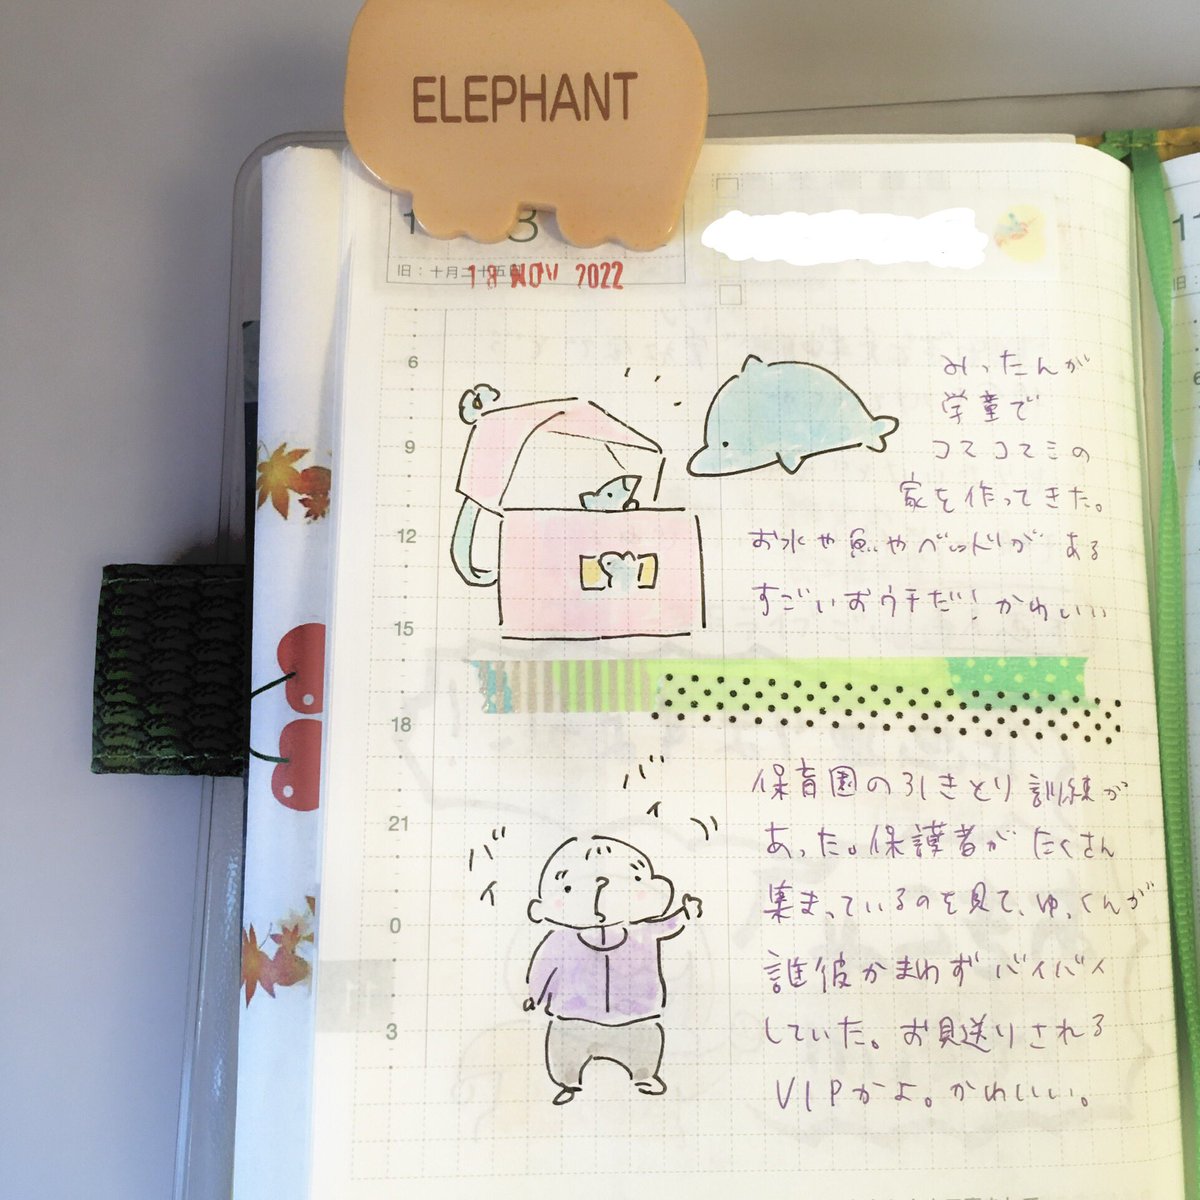 ELEPHANT
3
旧:十月二十五日
18 NOV 2022
6
9
12
15
18
21
0
3
みったんが
学童で
コマコマミの
家を作ってきた。
お水や魚やベッドがある
すごいおウチだ! かわいい
保育園の引きとり訓練が
あった。保護者がたくさん
集まっているのを見て、ゆっくんが
誰彼かまわずバイバイ
していた。お見送りされる
VIPかよ。かわいい。
バイ
バイ
11